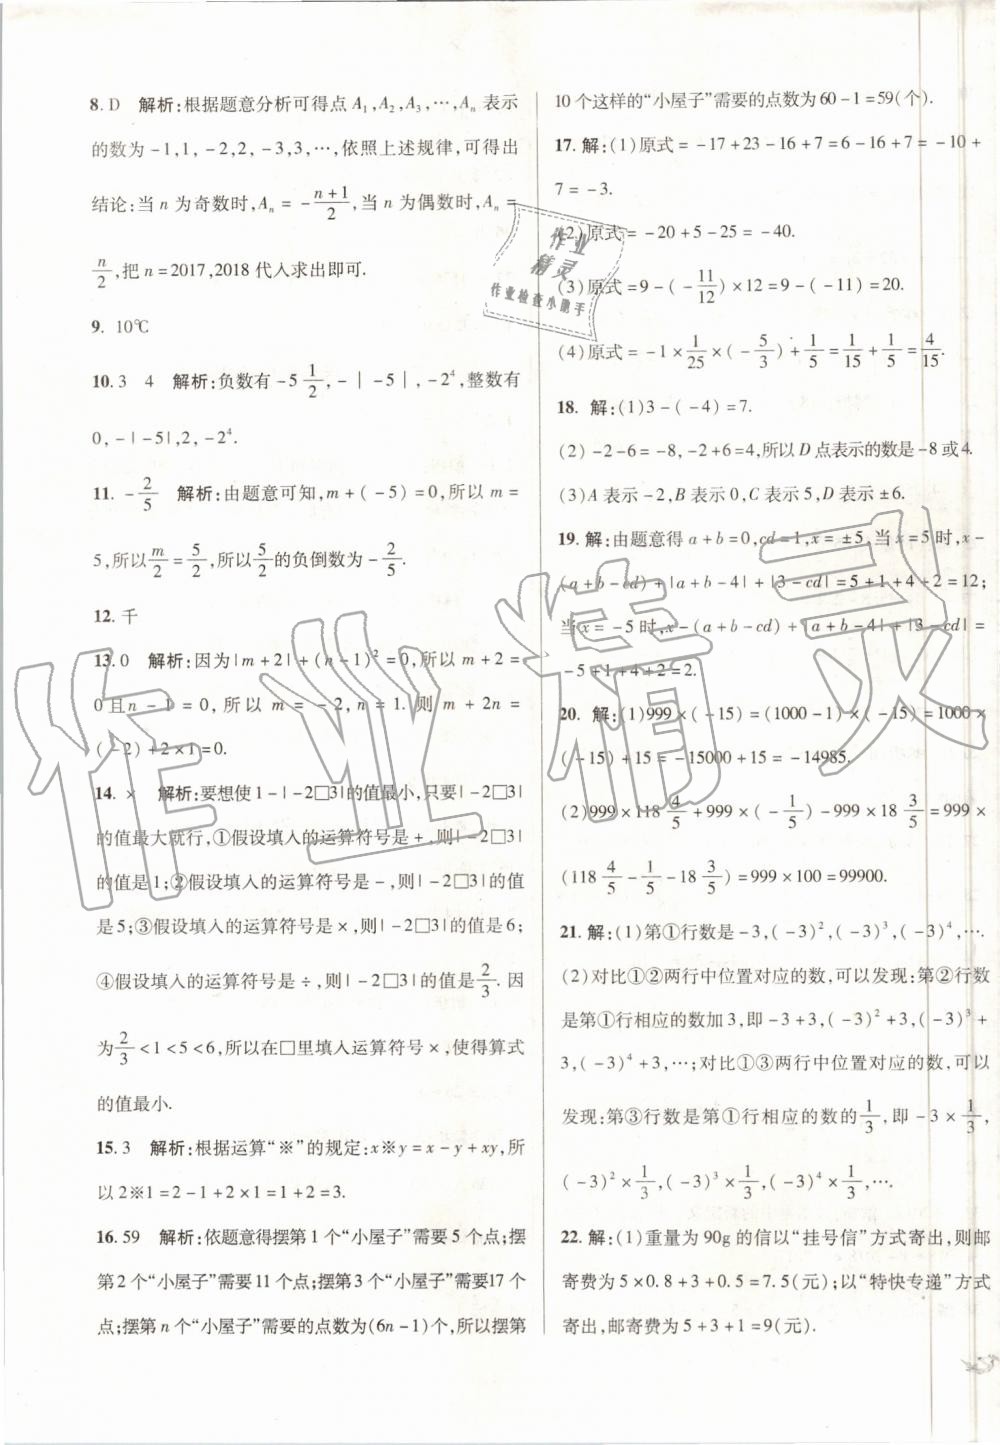 8. D 解析:根据题意分析可得点 A₁,A₂,A₃,…,Aₙ 表示
的数为 -1,1, -2,2, -3,3,…,依照上述规律,可得出
结论:当 n 为奇数时,Aₙ = -(n+1)/2,当 n 为偶数时,Aₙ =
n/2,把 n=2017,2018 代入求出即可.
9. 10℃
10. 3 4 解析:负数有 -5 1/2, -|-5|, -2⁴,整数有
0, -|-5|,2, -2⁴.
11. -2/5 解析:由题意可知,m+(-5)=0,所以 m=
5,所以m/2=5/2,所以5/2的负倒数为 -2/5.
12. 千
13. 0 解析:因为|m+2|+(n-1)²=0,所以 m+2=
0且n-1=0,所以 m=-2,n=1. 则 m+2n=
(-2)+2×1=0.
14. × 解析:要想使1-|-2□3|的值最小,只要|-2□3|
的值最大就行,①假设填入的运算符号是+,则|-2□3|
的值是1;②假设填入的运算符号是-,则|-2□3|的值
是5;③假设填入的运算符号是×,则|-2□3|的值是6;
④假设填入的运算符号是÷,则|-2□3|的值是2/3. 因
为2/3<1<5<6,所以在□里填入运算符号×,使得算式
的值最小.
15. 3 解析:根据运算“※”的规定:x※y=x-y+xy,所
以2※1=2-1+2×1=1+2=3.
16. 59 解析:依题意得摆第1个“小屋子”需要5个点;摆
第2个“小屋子”需要11个点;摆第3个“小屋子”需要17个
点;摆第n个“小屋子”需要的点数为(6n-1)个,所以摆第
10个这样的“小屋子”需要的点数为60-1=59(个).
17. 解:(1)原式 = -17+23-16+7=6-16+7= -10+
7= -3.
(2)原式 = -20+5-25= -40.
(3)原式=9-(-11/12)×12=9-(-11)=20.
(4)原式 = -1×1/25×(-5/3)+1/5=1/15+1/5=4/15.
18. 解:(1)3-(-4)=7.
(2) -2-6= -8, -2+6=4,所以D点表示的数是-8或4.
(3)A表示-2,B表示0,C表示5,D表示±6.
19. 解:由题意得a+b=0,cd=1,x=±5,当x=5时,x-
(a+b-cd)+|a+b-4|+|3-cd|=5+1+4+2=12;
当x=-5时,x-(a+b-cd)+|a+b-4|+|3-cd|=
-5+1+4+2=2.
20. 解:(1)999×(-15)=(1000-1)×(-15)=1000×
(-15)+15= -15000+15= -14985.
(2)999×118 4/5+999×(-1/5)-999×18 3/5=999×
(118 4/5-1/5-18 3/5)=999×100=99900.
21. 解:(1)第①行数是-3,(-3)²,(-3)³,(-3)⁴,….
(2)对比①②两行中位置对应的数,可以发现:第②行数
是第①行相应的数加3,即-3+3,(-3)²+3,(-3)³+
3,(-3)⁴+3,…;对比①③两行中位置对应的数,可以
发现:第③行数是第①行相应的数的1/3,即-3×1/3,
(-3)²×1/3,(-3)³×1/3,(-3)⁴×1/3,….
22. 解:(1)重量为90g的信以“挂号信”方式寄出,则邮
寄费为5×0.8+3+0.5=7.5(元);以“特快专递”方式
寄出,邮寄费为5+3+1=9(元).
作业
精灵
作业检查小助手
作业精灵